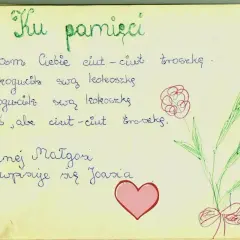 Ku pamięci
Ciebie ciut-ciut troszkę.
kogucik swą kokoszkę
ogucik swą kokoszkę
, ale ciut-ciut troszkę.
nej Małgosi
wpisuje się Joasia